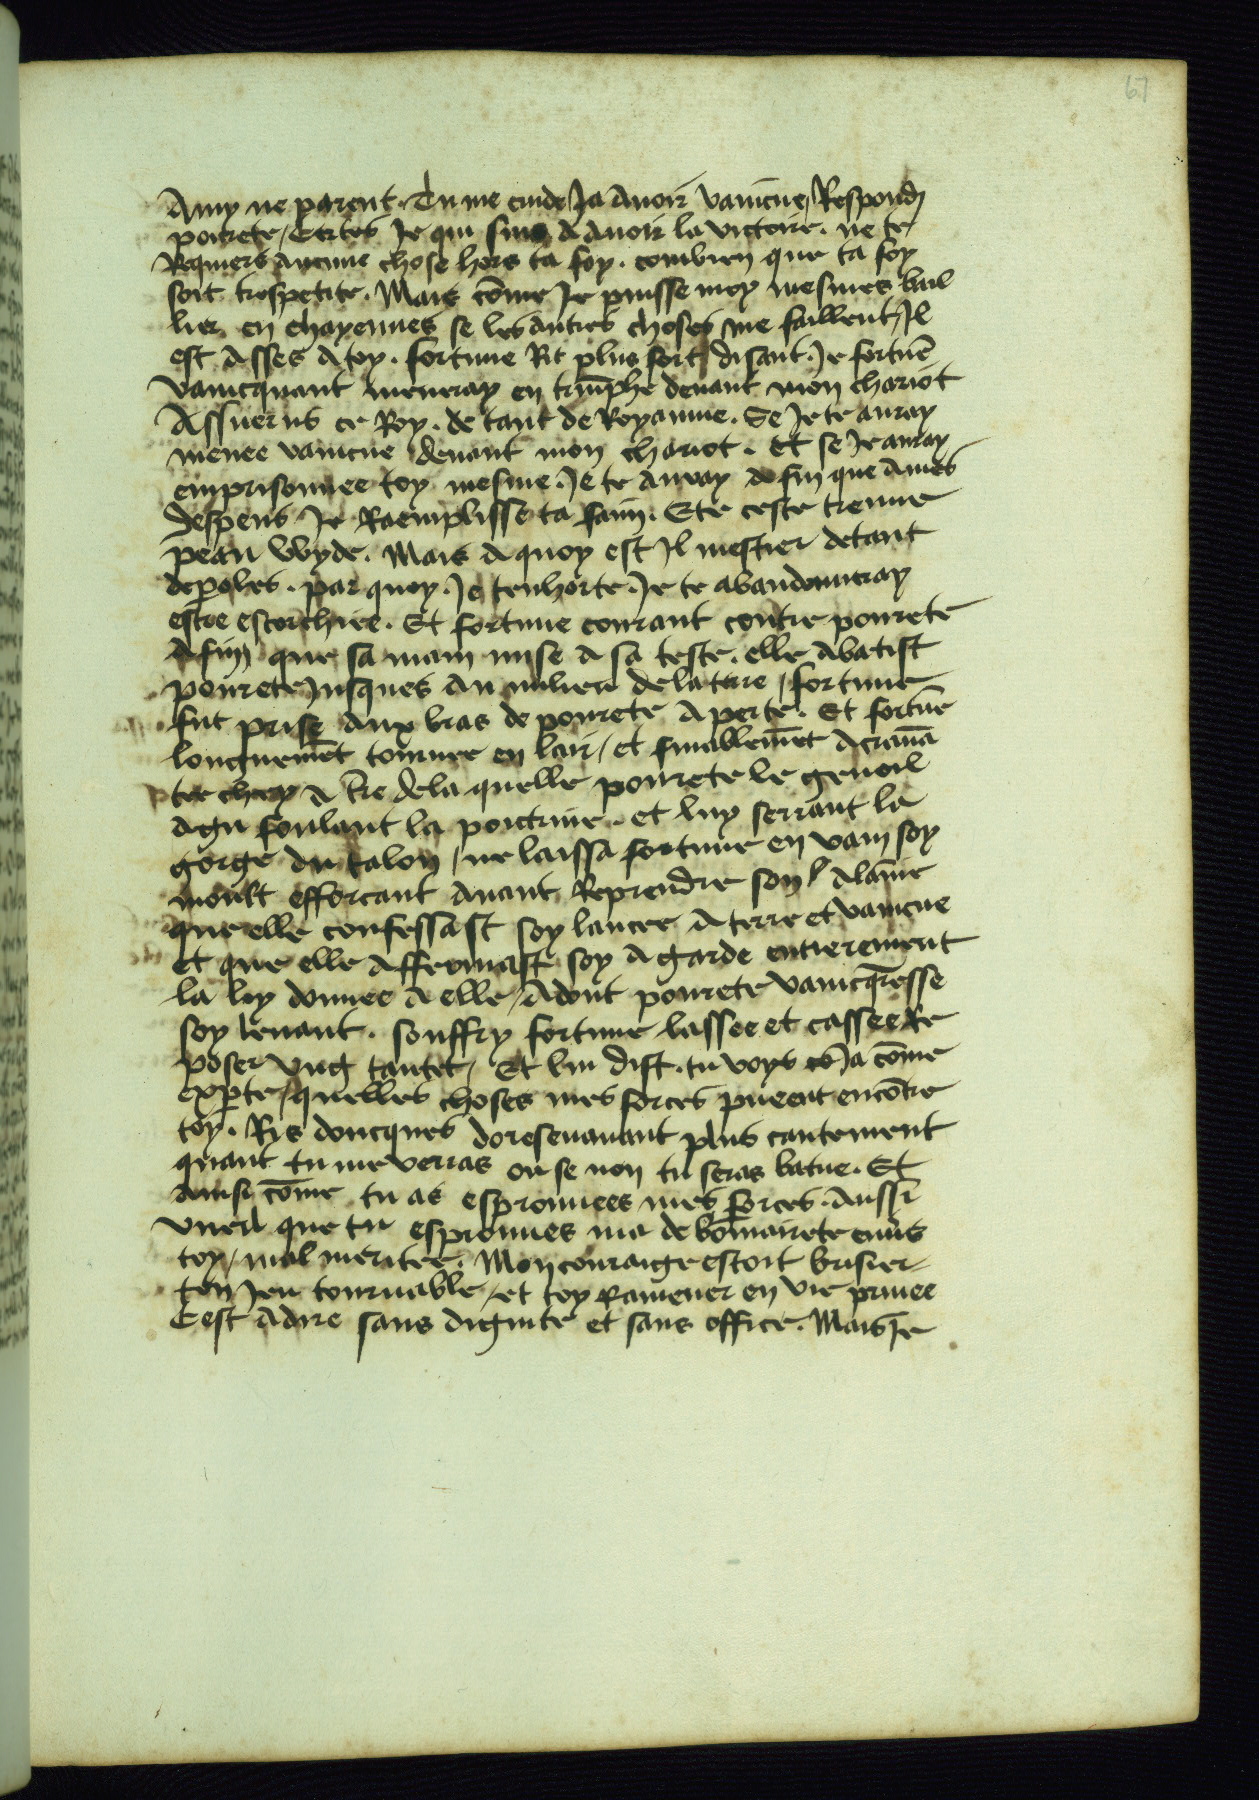 67
Amy ne parent. Tu me cuide Ja Avoir vaincue / Respond
pourete / Certes Je qui suis A Avoir la victoire. ne te
Requiers Aucune chose hors ta foy. combien que ta foy
soit trespetite. Mais cōme Je puisse moy mesmes bail
lier en chayennes se les autres choses me faillent / Il
est Asses A toy. fortune Rit plus fort disant. Je fortūe
vaincquant meneray en triūphe deuant mon chariot
Assuerus ce Roy. de tant de Royaume. Se Je te auray
menee vaincue deuant mon chariot. Et se Je auray
emprisonnee toy mesme. Je te auray Afin que A mes
despens Je Raemplisse ta faim. Et ceste tienne
peau wyde. Mais A quoy est Jl mestier de tant
de poles. par quoy. Je tenhorte. Je te abandonneray
estre escorchiee. Et fortune courant contre pourete
A fin que sa main mise A sa teste. elle Abatist
pourete Jusques Au milieu de la tere / fortune
fut prise Aux bras de pourete Aperte. Et fortūe
longuemēt tournee en lair / et finablemēt Acrauā
tee chey A tre de la quelle pourete le genoil
Agu foulant la poitrine. et luy serrant la
gorge du talon / ne laissa fortune en vain soy
moult efforcant Auant Reprendre son Alaine
que elle confessast soy lancee A terre et vaincue
et que elle Affermast soy A garde entierement
la loy donnee A elle / Adont pourete vaincqresse
soy leuant. souffry fortune lassee et cassee Re
poser vng tantet / Et lui dist. tu voys Ja cōme
experte / quelles choses mes forces pueent encōtre
toy. Ris doncques doresenauant plus cautement
quant tu me verras ou se non tu seras batue. Et
Ainsi cōme tu as esprouuees mes forces. Aussi
vueil que tu esprouues ma debōnairete enuers
toy / mal meritee. Mon couraige estoit brisier
ton Jeu tournable / et toy Ramener en vie priuee
Cest Adire sans dignite et sans office. Mais Je